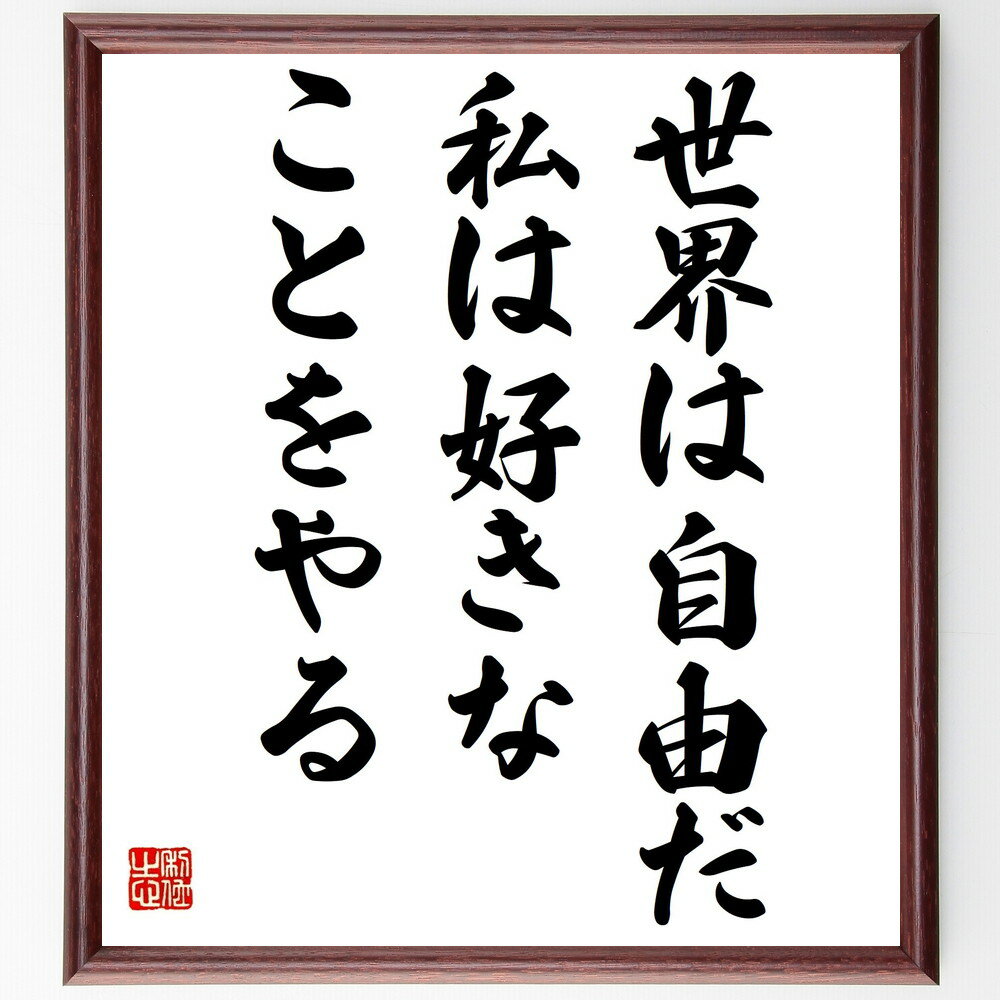 世界は自由だ
私は好きな
ことをやる